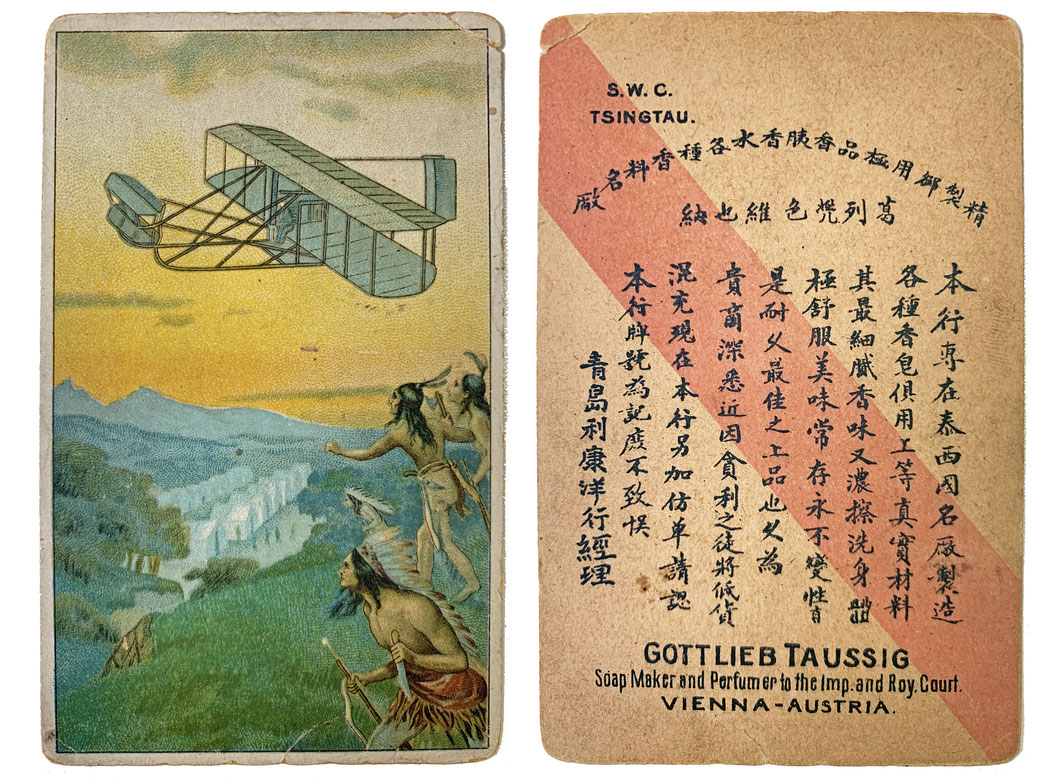 S.W.C.
TSINGTAU.
精製御用極品香胰香水各種香料名廠
葛列兠色維也納
本行專在泰西因名廠製造
各種香皂俱用上等真實材料
其最細膩香味又濃擦洗身體
極舒服美味常存永不變性
是耐久最佳之上品也久為
貴商深悉近因貪利之徒將低貨
混充現在本行另加仿單請認
本行牌號為記庶不致悞
青島利康洋行經理
GOTTLIEB TAUSSIG
Soap Maker and Perfumer to the Imp. and Roy. Court.
VIENNA-AUSTRIA.